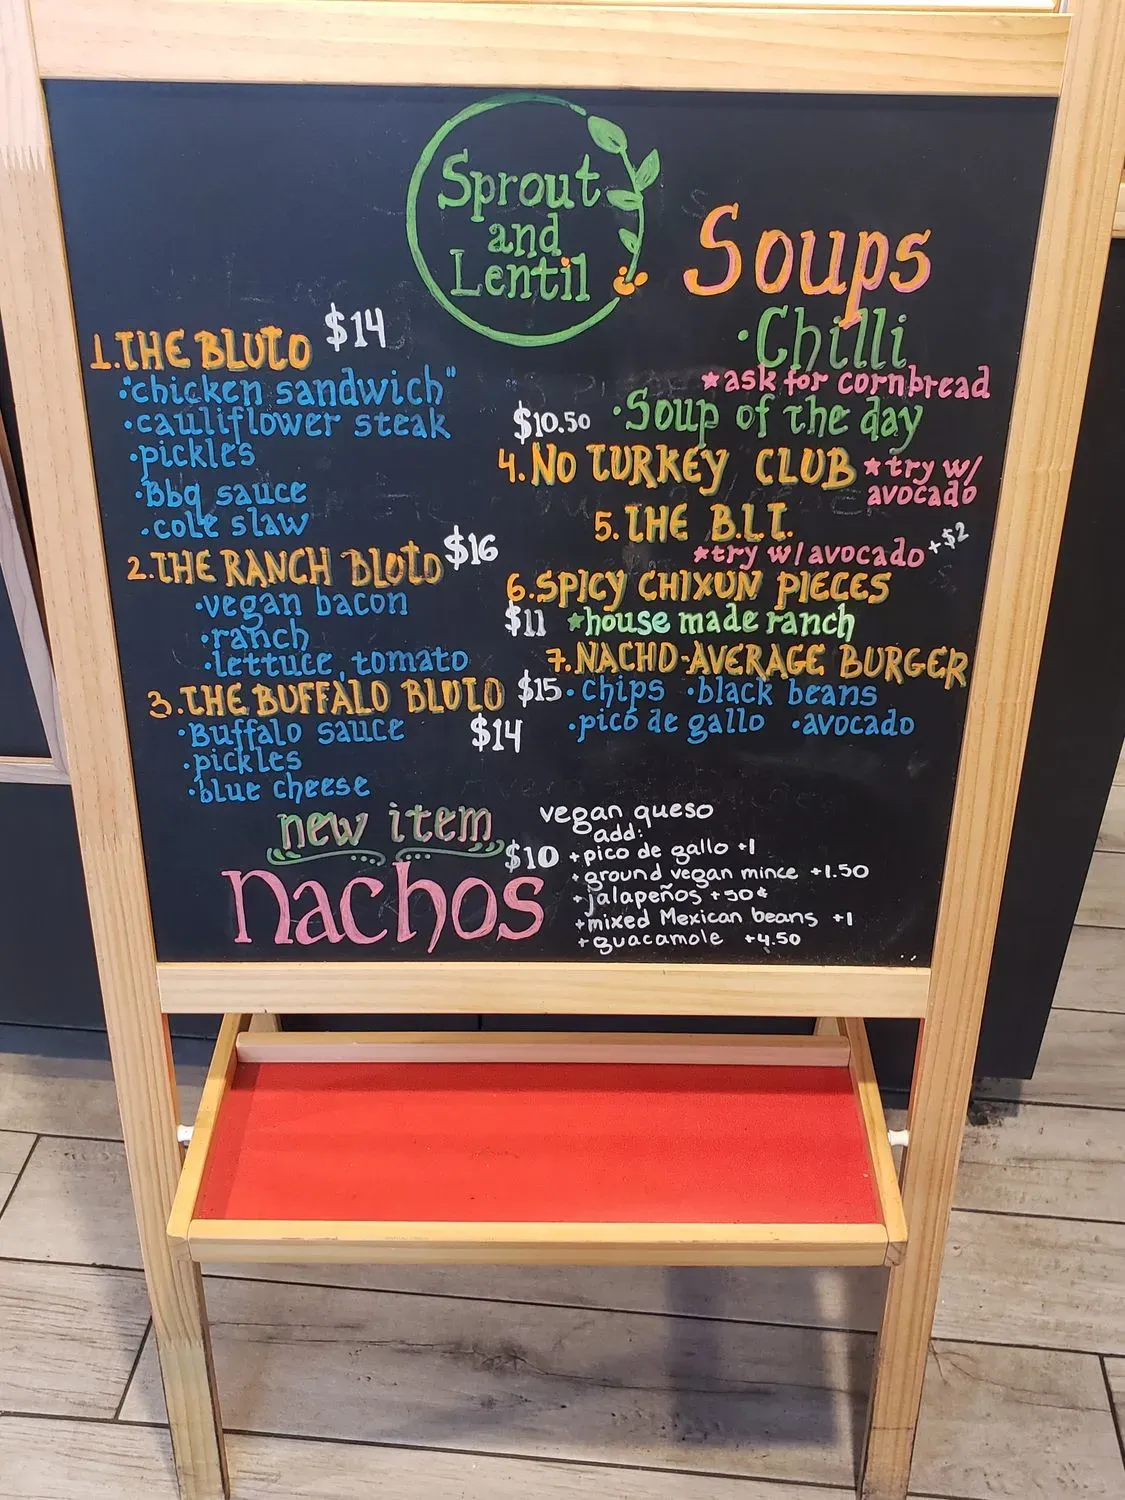 Sprout
and
Lentil
1. THE BLUTO $14
"chicken sandwich"
•cauliflower steak
•pickles
•Bbq sauce
•cole slaw
2. THE RANCH BLUTO $16
•vegan bacon
•ranch
•lettuce, tomato
3. THE BUFFALO BLUTO $15
•Buffalo sauce
•pickles
•blue cheese
Soups
•Chilli
*ask for cornbread
•Soup of the day
$10.50
4. NO TURKEY CLUB *try w/
avocado
5. THE B.L.T.
*try w/ avocado +$2
6. SPICY CHIXUN PIECES
$11 *house made ranch
7. NACHO-AVERAGE BURGER
•chips •black beans
•pico de gallo •avocado
$14
new item
Nachos $10
vegan queso
add:
+pico de gallo +1
+ground vegan mince +1.50
+jalapeños +50¢
+mixed Mexican beans +1
+guacamole +4.50